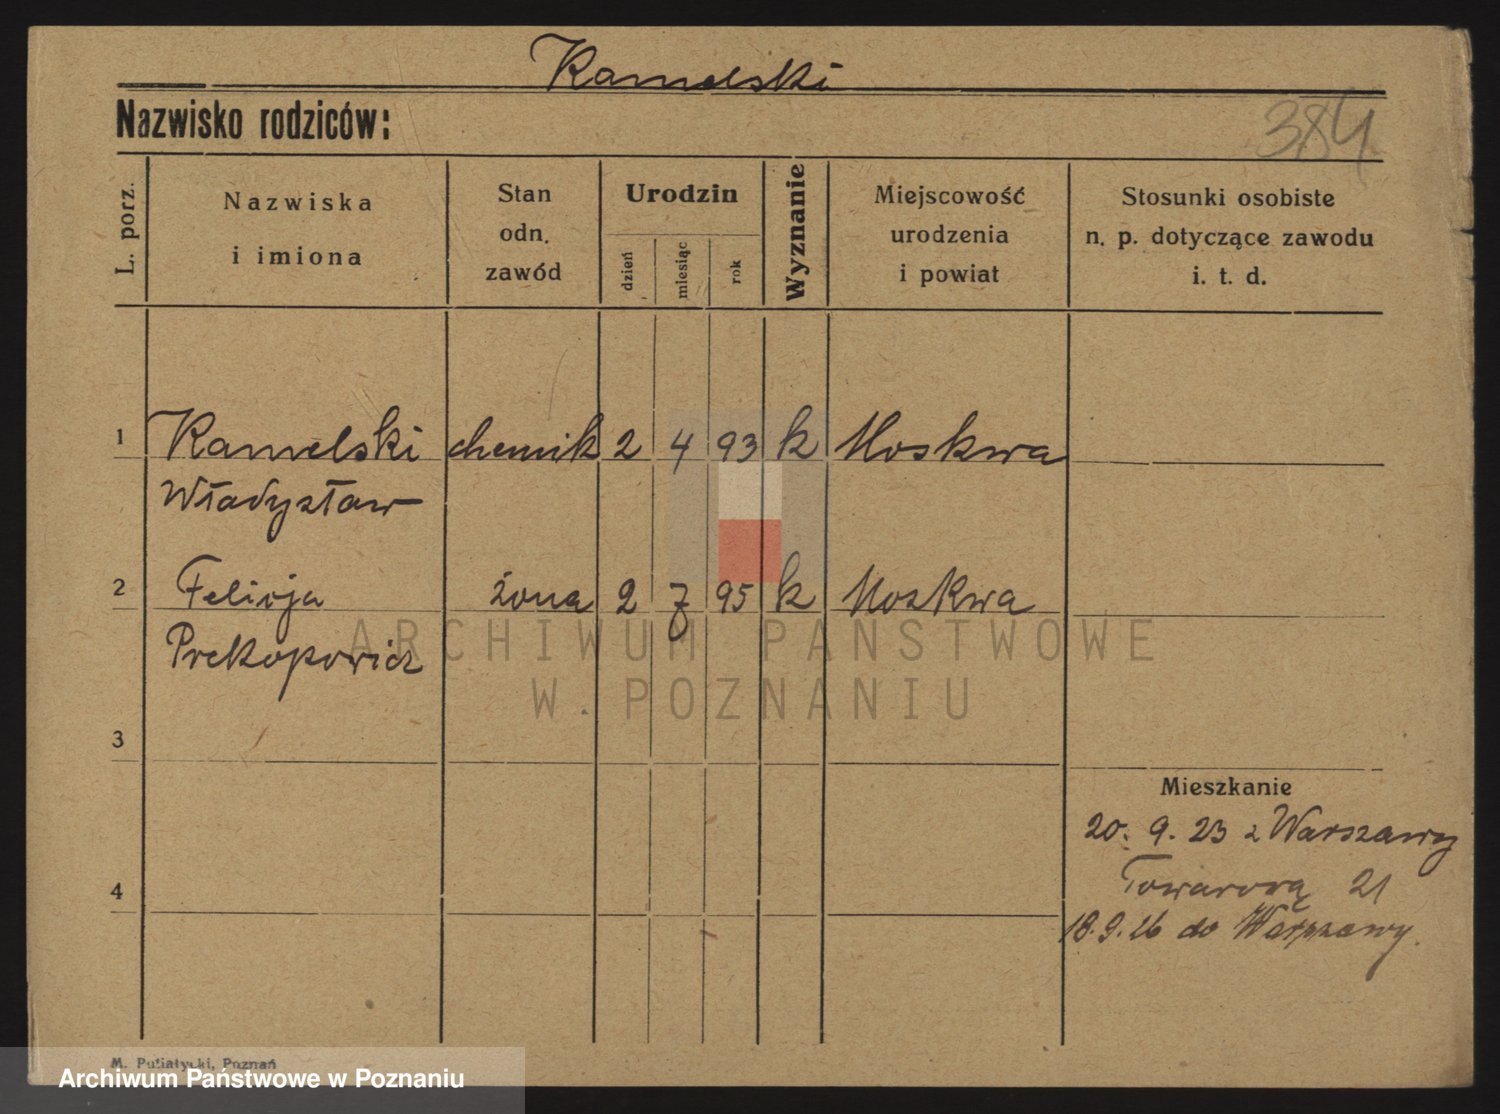 Kamelski
Nazwisko rodziców:
384
L. porz.
Nazwiska
i imiona
Stan
odn.
zawód
Urodzin
dzień
miesiąc
rok
Wyznanie
Miejscowość
urodzenia
i powiat
Stosunki osobiste
n. p. dotyczące zawodu
i. t. d.
1 Kamelski chemik 2 4 93 k Moskwa
Władysław
2 Felicja żona 2 7 95 k Moskwa
Prekopowicz
ARCHIWUM PAŃSTWOWE
W POZNANIU
3
Mieszkanie
20. 9. 23 z Warszawy
Towarową 21
4
18. 9. 26 do Warszawy.
M. Putiatycki, Poznań
Archiwum Państwowe w Poznaniu